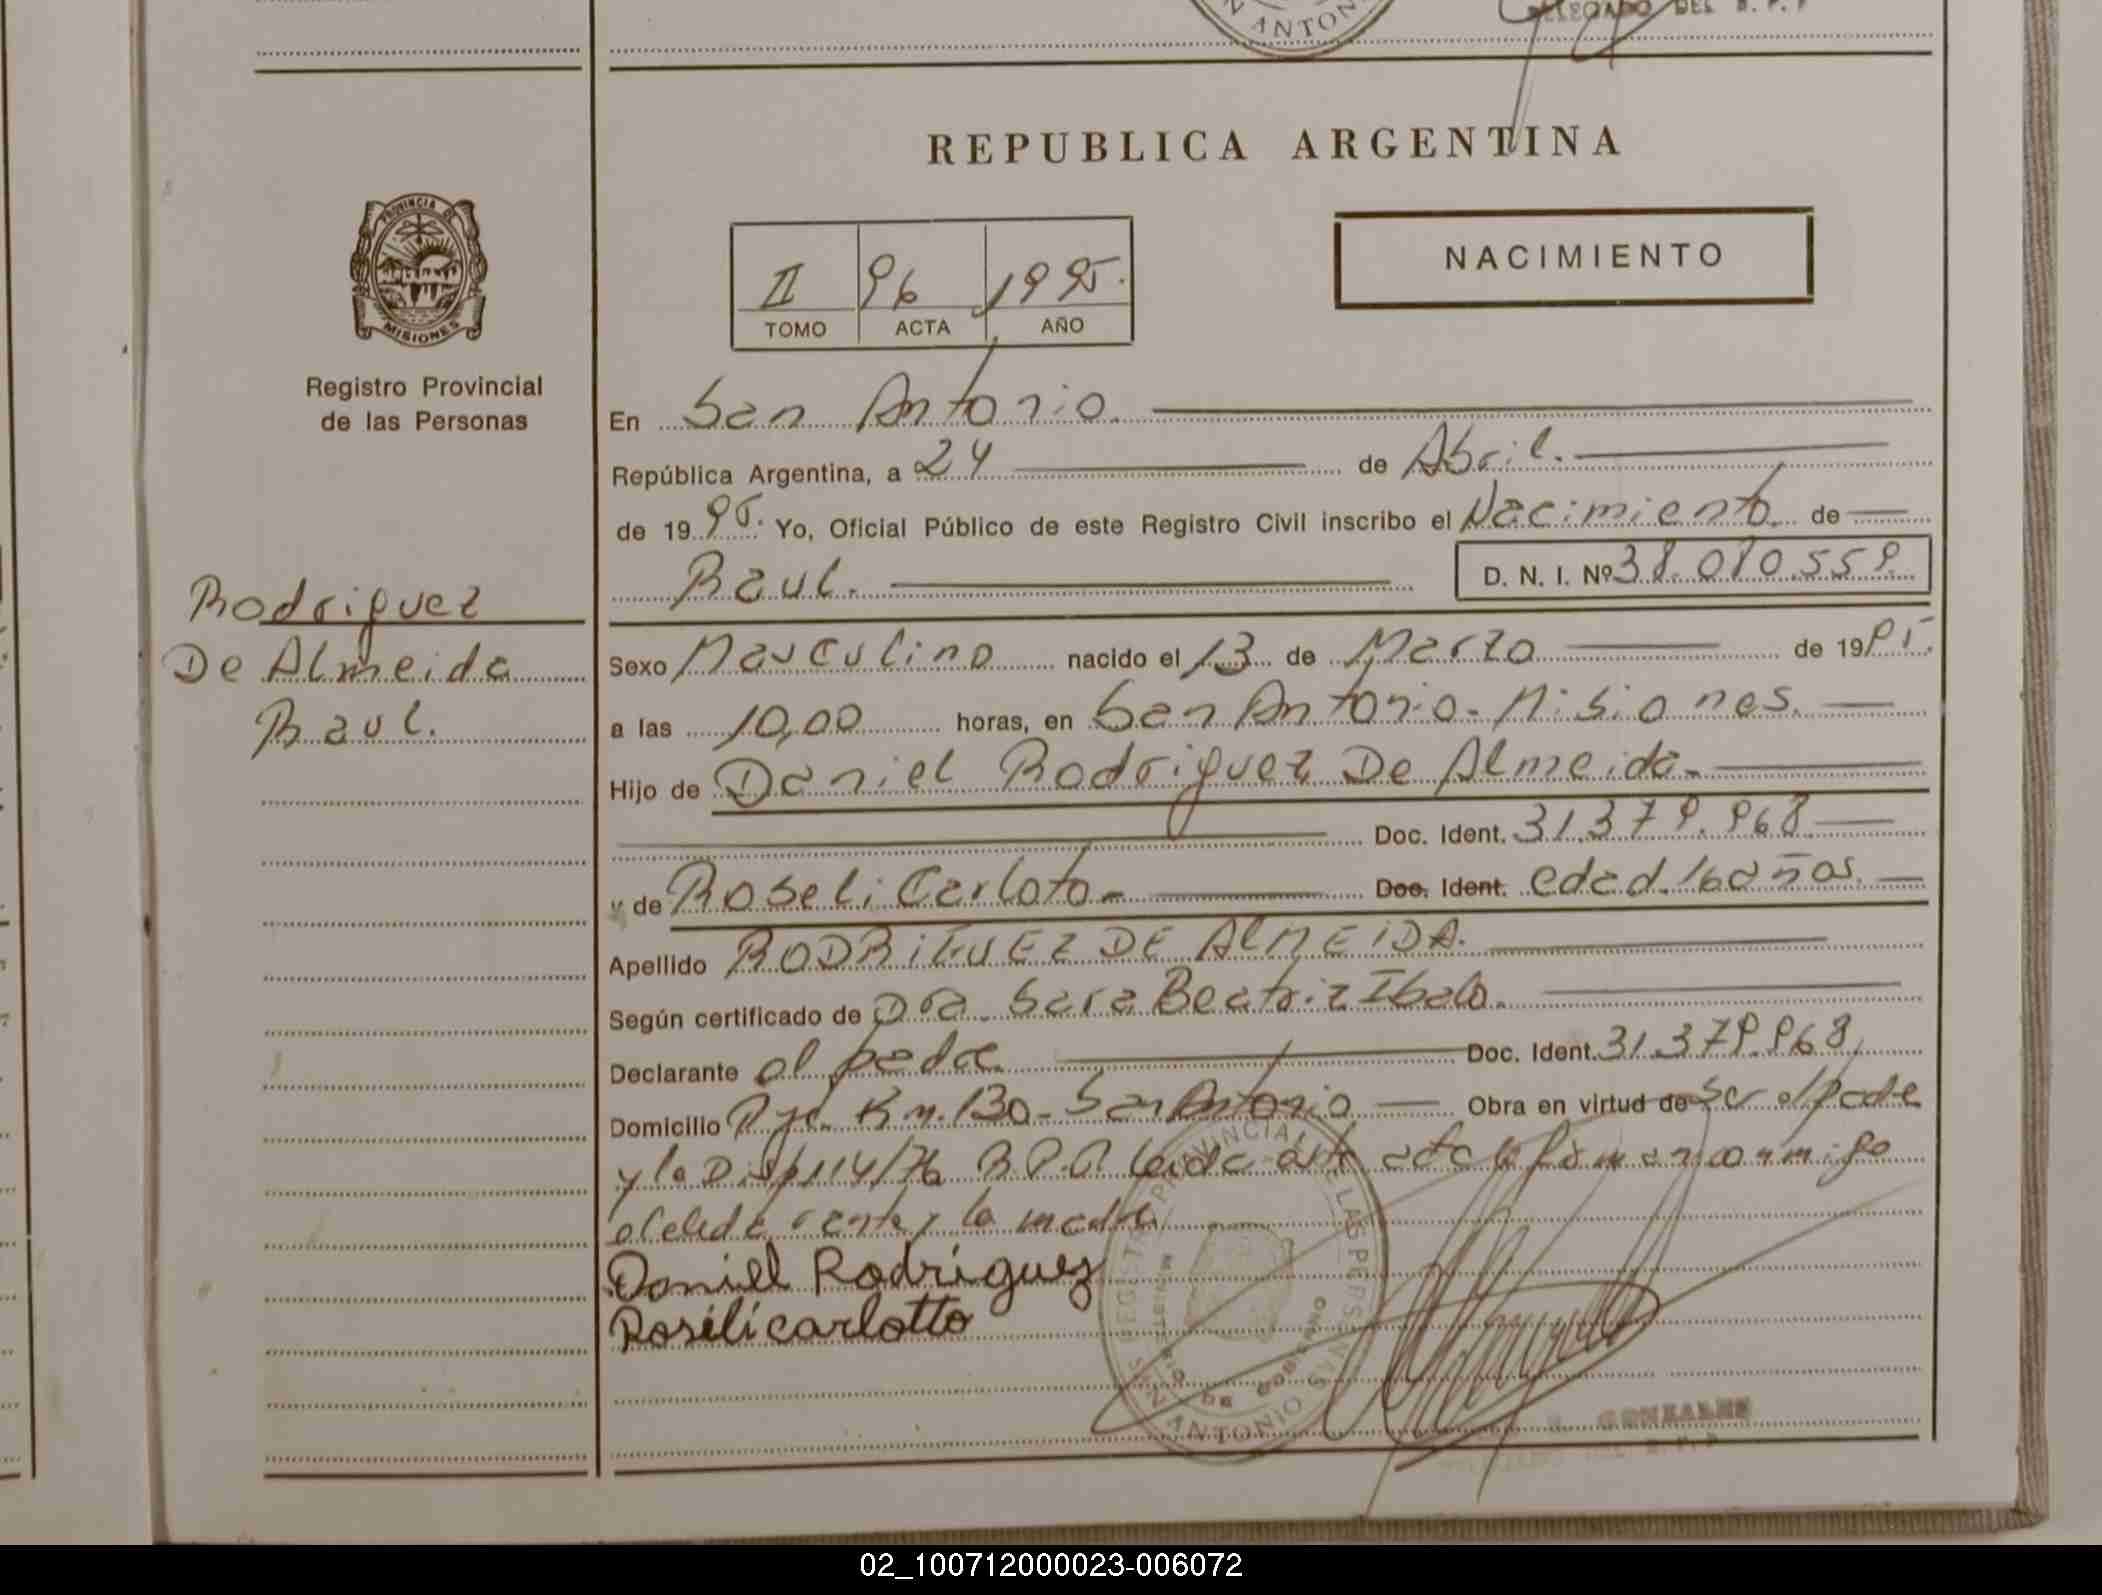 SAN ANTONIO
DELEGADO DEL R. P. P
REPUBLICA ARGENTINA
PROVINCIA DE
MISIONES
Registro Provincial
de las Personas
II 96 1995.
TOMO ACTA AÑO
NACIMIENTO
En San Antonio.
República Argentina, a 24 de Abril.
de 1995. Yo, Oficial Público de este Registro Civil inscribo el Nacimiento de
Raul. D. N. I. Nº 38.010.559.
Rodriguez
De Almeida
Raul.
Sexo Masculino nacido el 13 de Marzo de 1995.
a las 10,00 horas, en San Antonio - Misiones.
Hijo de Daniel Rodriguez De Almeida.
Doc. Ident. 31.379.968
y de Roseli Carloto Doc. Ident. edad. 16 años.
Apellido RODRIGUEZ DE ALMEIDA.
Según certificado de Dra. Sara Beatriz Ibalo.
Declarante el padre Doc. Ident. 31.379.968,
Domicilio Pje. Km. 130 - San Antonio Obra en virtud de ser el padre
y la Disp 114/76 R.P.P. leida este acta la firman conmigo
el declarante y la madre
Daniel Rodriguez
Roseli carlotto
REGISTRO PROVINCIAL DE LAS PERSONAS
MINISTERIO DE GOBIERNO
SAN ANTONIO
GONZALES
02_100712000023-006072